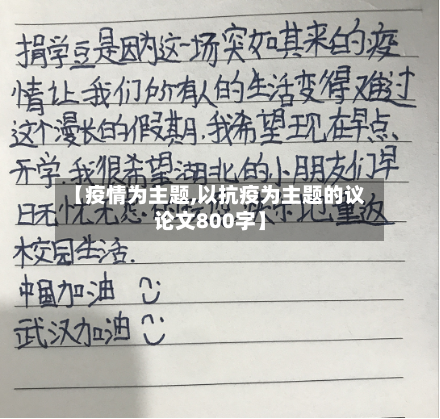 捐学豆是因为这一场突如其来的疫
情让我们所有人的生活变得难过
这个漫长的假期.我希望现在早点、
开学.我很希望湖北的小朋友们早
【疫情为主题,以抗疫为主题的议
论文800字】
日无忧无虑 地重返
校园生活.
中国加油
武汉加油